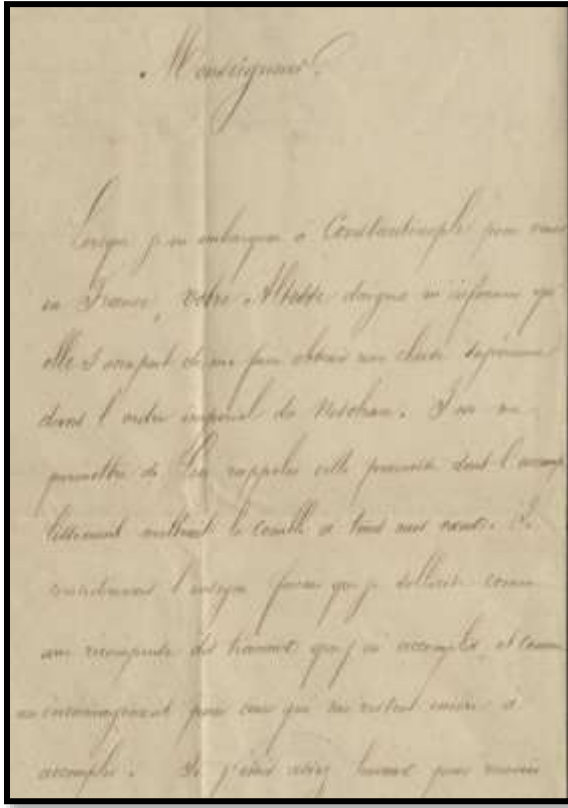 Monseigneur!
Lorsque je m'embarquai à Constantinople pour venir
en France, Votre Altesse daigna m'informer qu'
elle s'occupait de me faire obtenir une classe supérieure
dans l'ordre impérial du
permettre de Lui rappeler cette promesse dont l'accomp
lissement mettrait le comble à tous mes vœux. Je
l'insigne faveur que je sollicite comme
une récompense des travaux que j'ai accomplis, et comme
un encouragement pour ceux qui me restent encore à
accomplir. Si j'étais assez heureux pour